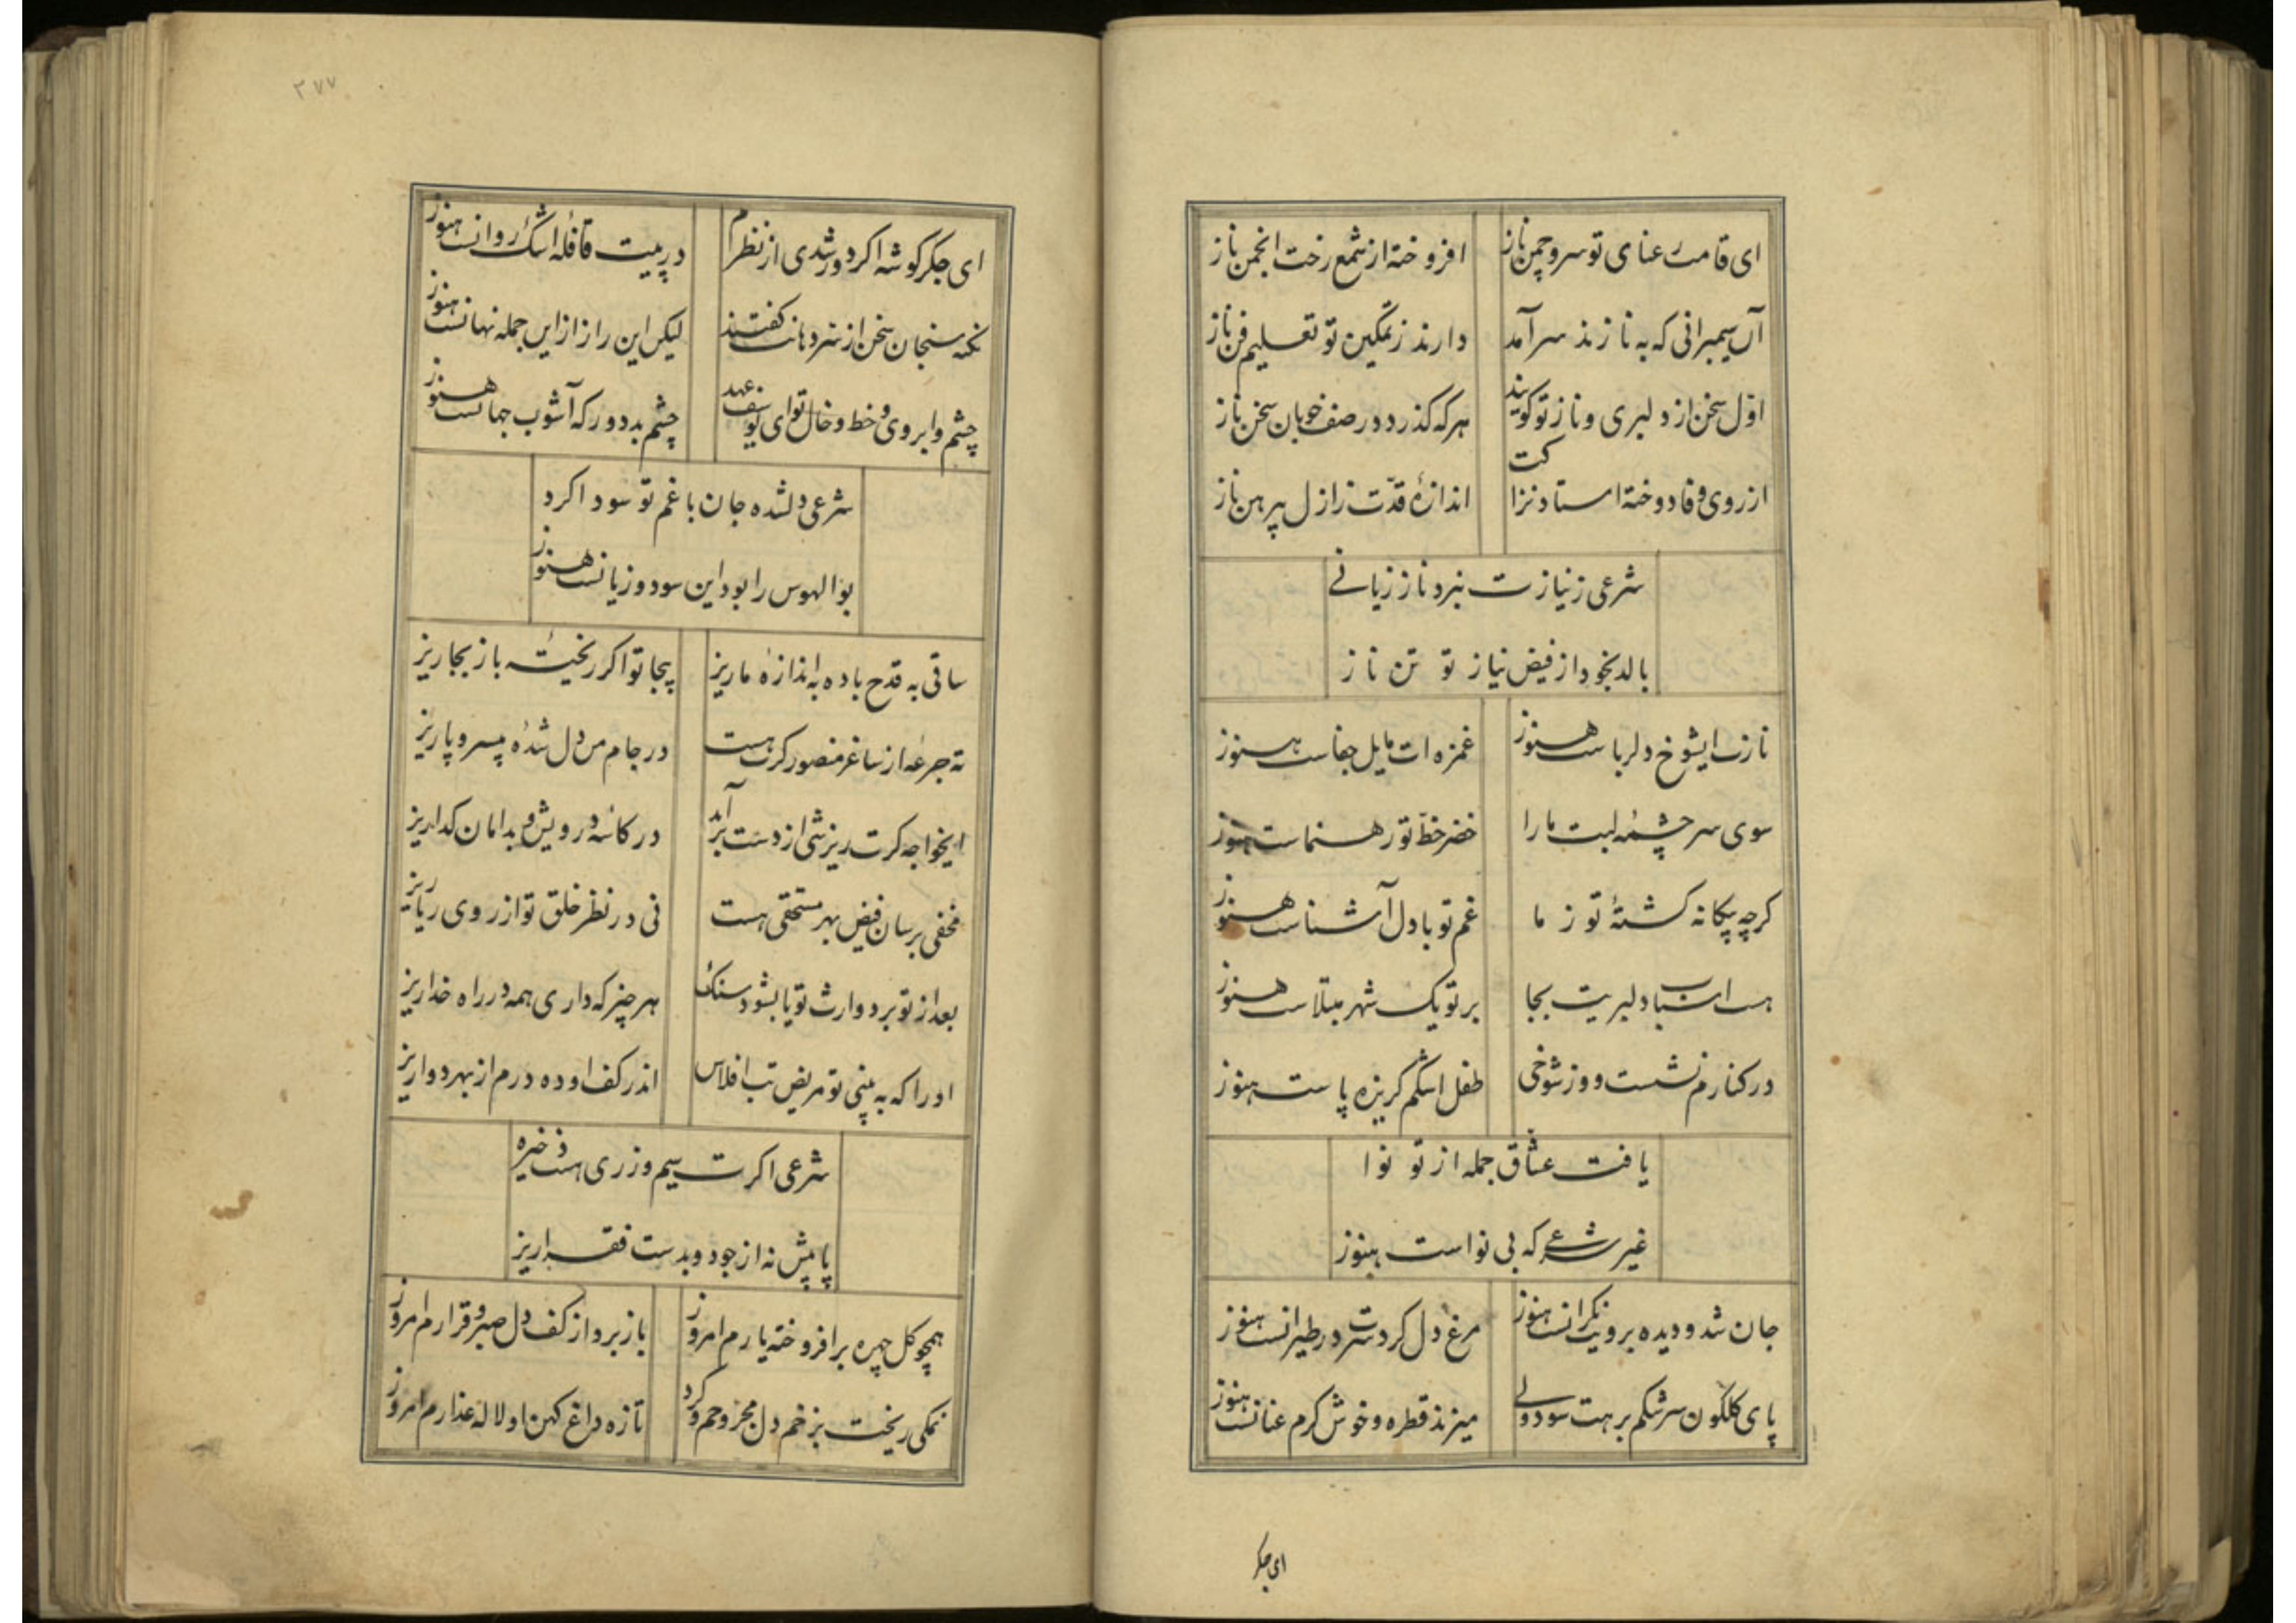 ای قامت رعنای تو سرو چمن ناز افروخته از شمع رخت انجمن ناز
آن سیمبرانی که به نازند سرآمد دارند ز تمکین تو تعلیم فن ناز
اوّل سخن از دلبری و ناز تو کویند هر که کذرد در صف خوبان سخن ناز
از روی وفا دوخته استاد نزاکت اندازهٔ قدّت ز ازل پیرهن ناز
شرعی ز نیازت نبرد ناز زیانے
بالد بخود از فیض نیاز تو تن ناز
نازت ایشوخ دلرباست هنوز غمزه ات مایل جفاست هنوز
سوی سرچشمهٔ لبت ما را خضر خطّ تو رهنماست هنوز
کرچه بیکانه کشتهٔ تو ز ما غم تو با دل آشناست هنوز
هست اسباب دلبریت بجا بر تو یک شهر مبتلاست هنوز
در کنارم نشست و وز شوخی طفل اشکم کریزه پاست هنوز
یافت عشاق جمله از تو نوا
غیر شرعے که بی نواست هنوز
جان شد و دیده برویت نکرانست هنوز مرغ دل کرد سرت در طیرانست هنوز
پای کلکون سرشکم برهت سود ولے میزند قطره و خوش کرم عنانست هنوز
ای جکر
۳۷۷
ای جکر کوشه اکر دور شدی از نظرم در پیت قافلهٔ اشک روانست هنوز
نکته سنجان سخن از سر دهانت کفتند لیکن این راز از این جمله نهانست هنوز
چشم و ابروی و خط و خال تو ای یوسف عهد چشم بد دور که آشوب جهانست هنوز
شرعی دلشده جان با غم تو سودا کرد
بوالهوس را بود این سود و زیانست هنوز
ساقی به قدح باده به اندازهٔ ما ریز بیجا تو اکر ریختهٔ باز بجا ریز
ته جرعه از ساغر منصور کرت هست در جام من دل شدهٔ بیسر و پا ریز
ایخواجه کرت ریزشی از دست برآید در کاسهٔ درویش و بدامان کدا ریز
مخفی برسان فیض بهر مستحقی هست نی در نظر خلق تو از روی ریا ریز
بعد از تو برد وارث تو یا بشود سنک هر چیز که داری همه در راه خدا ریز
او را که به بینی تو مریض تب افلاس اندر کف او ده درم از بهر دوا ریز
شرعی اکرت سیم و زری هست ذخیره
پا پیش نه از جود و بدست فقرا ریز
همچو کل چهره برافروخته یارم امروز باز برد از کف دل صبر و قرارم امروز
نمکی ریخت بزخم دل مجروحم و کرد تازه داغ کهن او لاله عذارم امروز